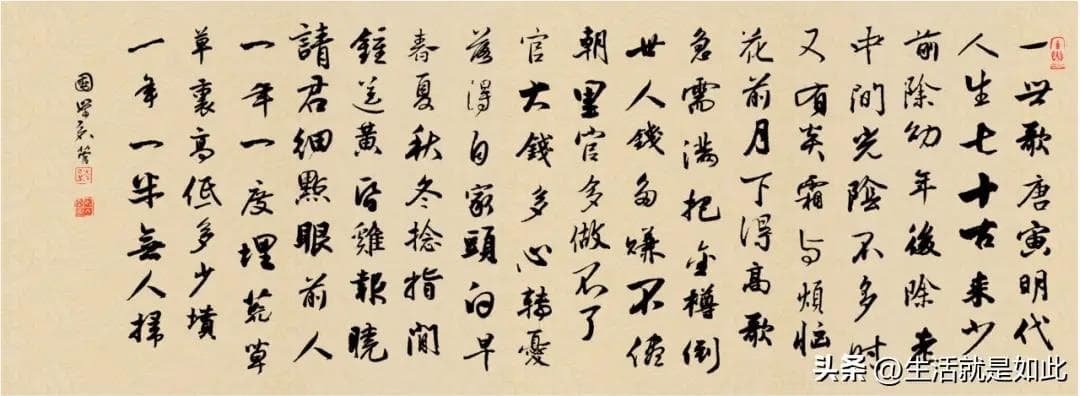 一世歌唐寅明代
人生七十古来少
前除幼年後除老
中間光陰不多时
又有炎霜与煩惱
花前月下得高歌
急需滿把金樽倒
世人錢多赚不儘
朝里官多做不了
官大錢多心轉憂
落得自家頭白早
春夏秋冬捻指間
鐘送黃昏雞報曉
請君細點眼前人
一年一度埋荒草
草裏高低多少墳
一年一半無人掃
头条 @生活就是如此